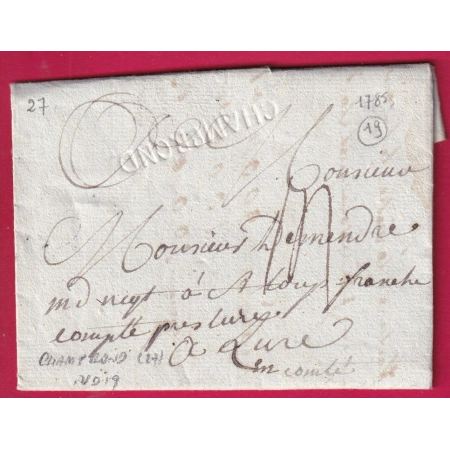 27
1785
19
CHAMPROND
Monsieur
Monsieur Demendre
md negt à St Loup franche
compté pres lure
a Lure
en comté
CHAMPROND (27)
N° 19